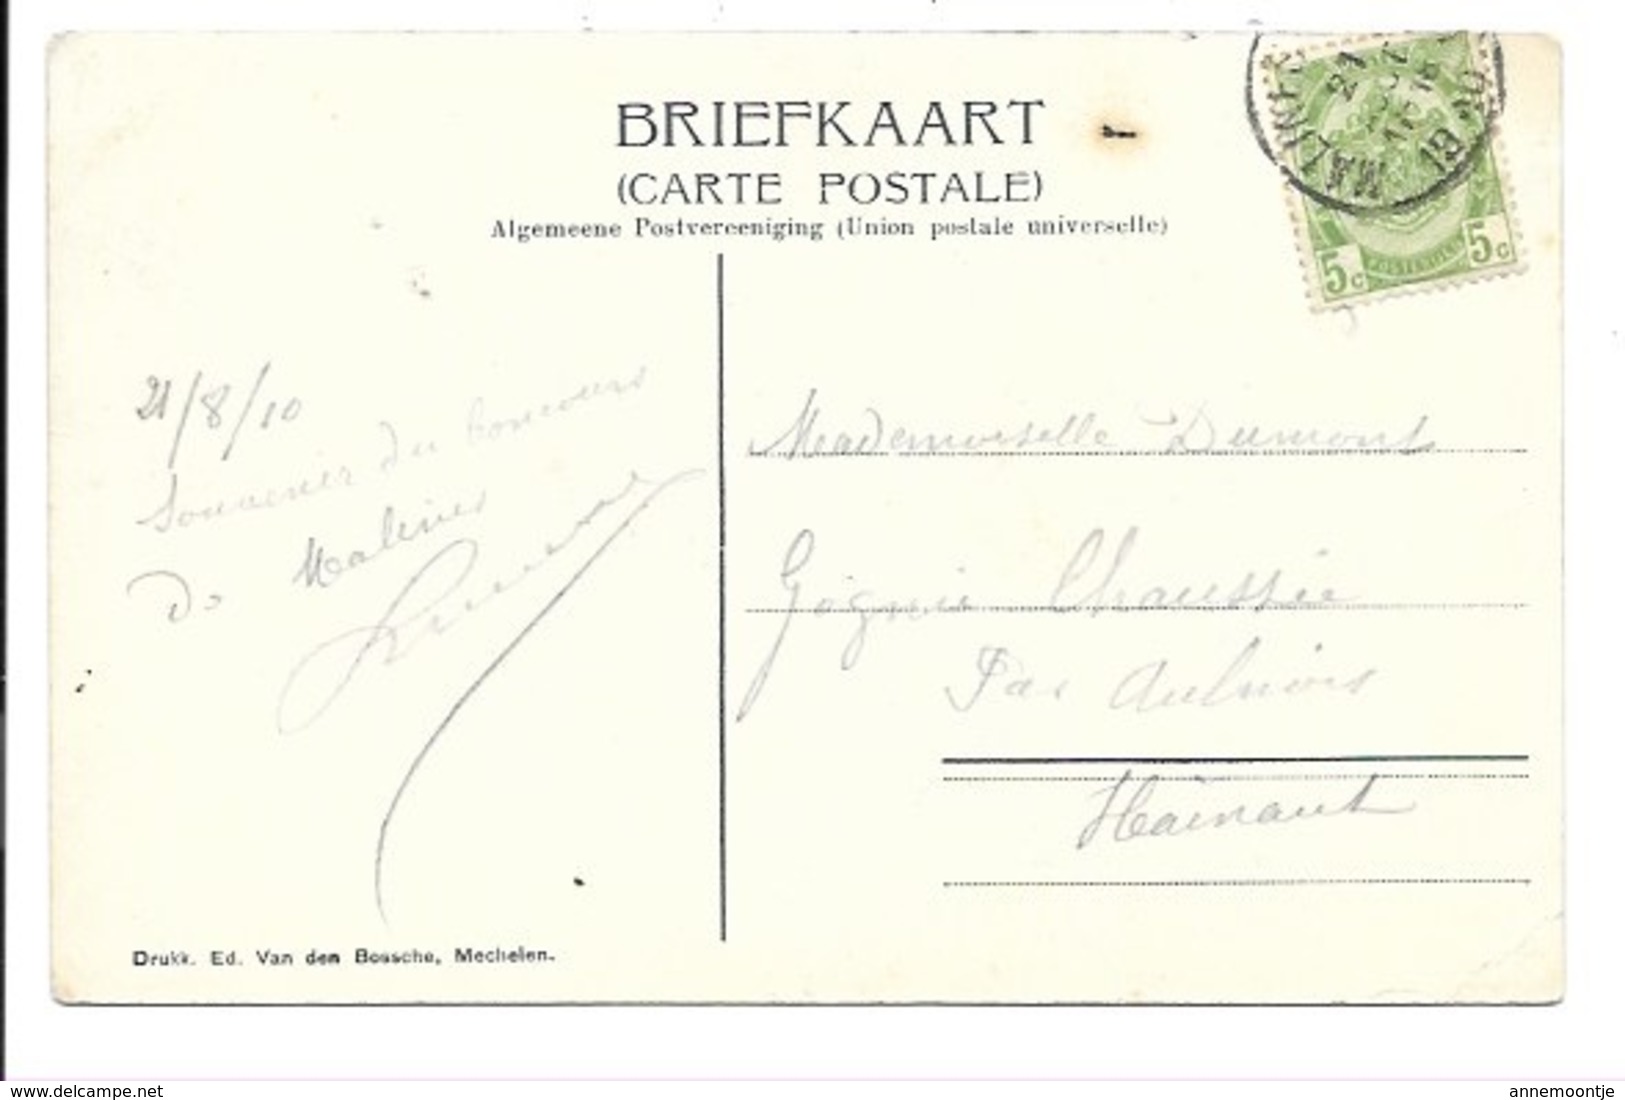 BRIEFKAART
(CARTE POSTALE)
Algemeene Postvereeniging (Union postale universelle)
MALINES
21
19 10
5c
POSTERIJEN
5c
21/8/10
Souvenir du Concours
De Malines
Mademoiselle Dumont
Gognie Chaussée
Par Aulnois
Hainaut
Drukk. Ed. Van den Bossche, Mechelen.
delcampe.net
annemoontje